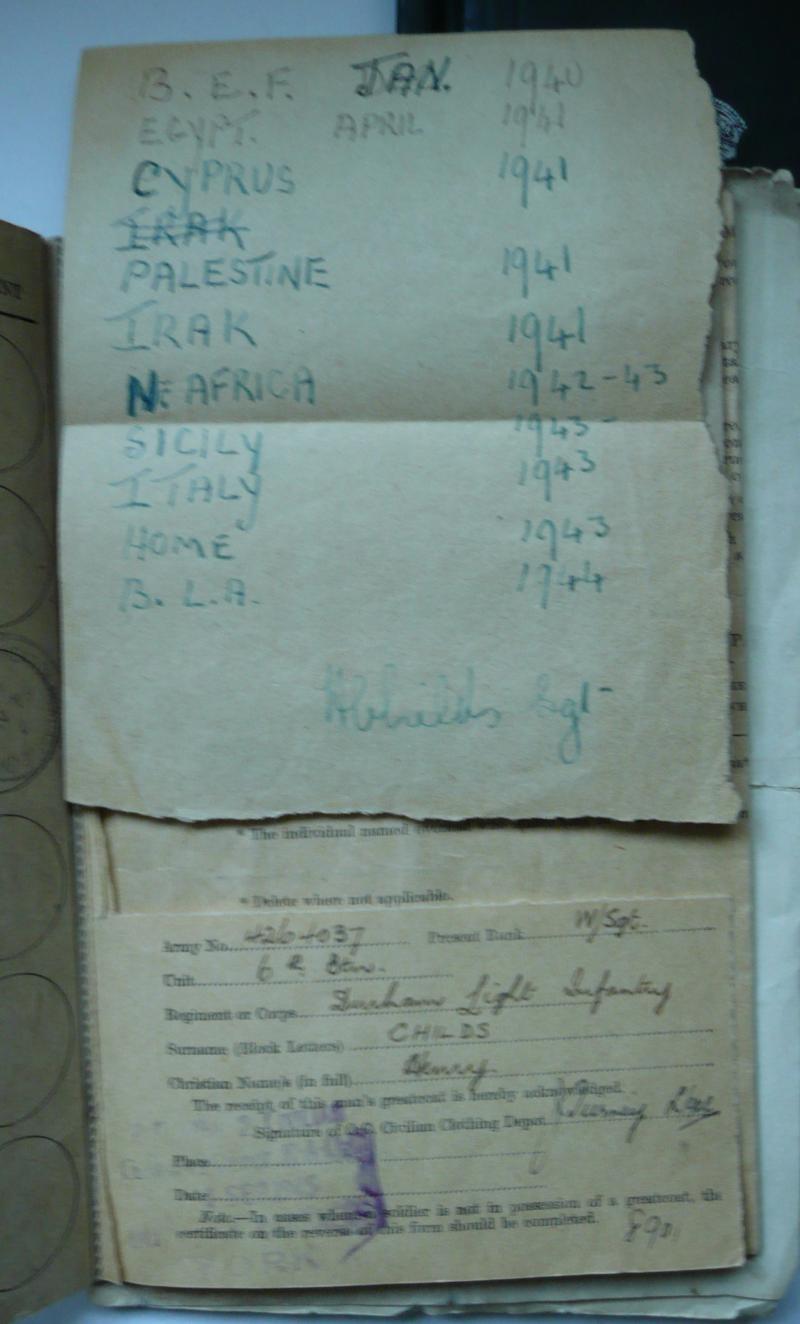 B. E. F. JAN. 1940
EGYPT. APRIL 1941
CYPRUS 1941
IRAK
PALESTINE 1941
IRAK 1941
N. AFRICA 1942-43
SICILY 1943-
ITALY 1943
HOME 1943
B. L. A. 1944
HChilds Sgt
* The individual named
* Delete where not applicable.
Army No. 4264037 Present Rank W/Sgt.
Unit 6th Btn.
Regiment or Corps Durham Light Infantry
Surname (Block Letters) CHILDS
Christian Name/s (in full) Henry
The receipt of this man's greatcoat is hereby acknowledged.
Signature of O.C. Civilian Clothing Depot
Place
Date
Note.—In cases where a soldier is not in possession of a greatcoat, the
certificate on the reverse of this form should be completed.
YORK